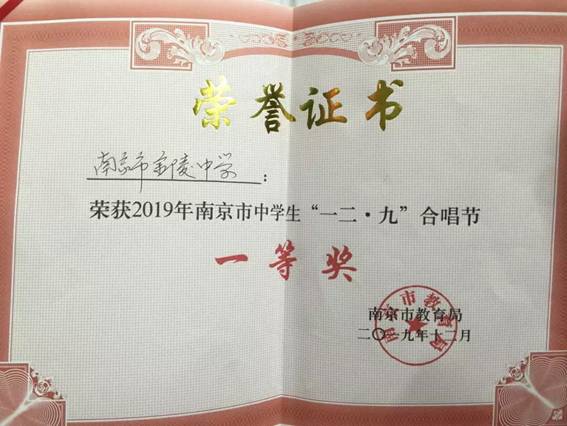 荣誉证书
南京市金陵中学：
荣获2019年南京市中学生“一二·九”合唱节
一等奖
南京市教育局
二〇一九年十二月
南京市教育局